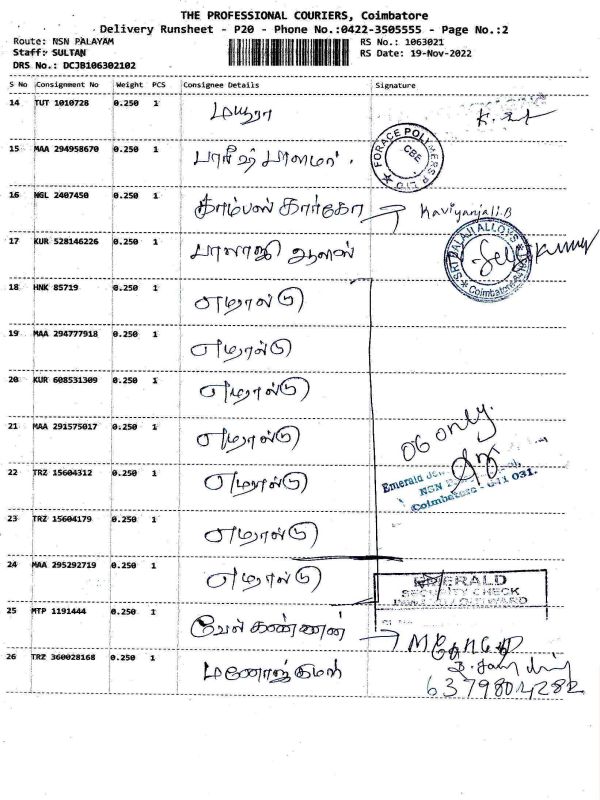 THE PROFESSIONAL COURIERS, Coimbatore
Delivery Runsheet - P20 - Phone No.:0422-3505555 - Page No.:2
Route: NSN PALAYAM
RS No.: 1063021
Staff: SULTAN
RS Date: 19-Nov-2022
DRS No.: DCJB106302102
S No Consignment No Weight PCS Consignee Details Signature
14 TUT 1010728 0.250 1 மயூரா
15 MAA 294958670 0.250 1 FORACE POLYMERS P LTD CBE
16 NGL 2407450 0.250 1 காம்பஸ் கார்கோ Kaviyanjali.B
17 KUR 528146226 0.250 1 பாலாஜி ஆலாஸ் SRI BALAJI ALLOYS Coimbatore
18 HNK 85719 0.250 1 எமரால்டு
19 MAA 294777918 0.250 1 எமரால்டு
20 KUR 608531309 0.250 1 எமரால்டு
21 MAA 291575017 0.250 1 எமரால்டு
06 only.
22 TRZ 15604312 0.250 1 எமரால்டு
Emerald
NSN
Coimbatore - 641 031.
23 TRZ 15604179 0.250 1 எமரால்டு
24 MAA 295292719 0.250 1 எமரால்டு
EMERALD
SECURITY CHECK
25 MTP 1191444 0.250 1 வேல் கண்ணன்
26 TRZ 360028168 0.250 1 மனோஜ்குமார்
6379804282